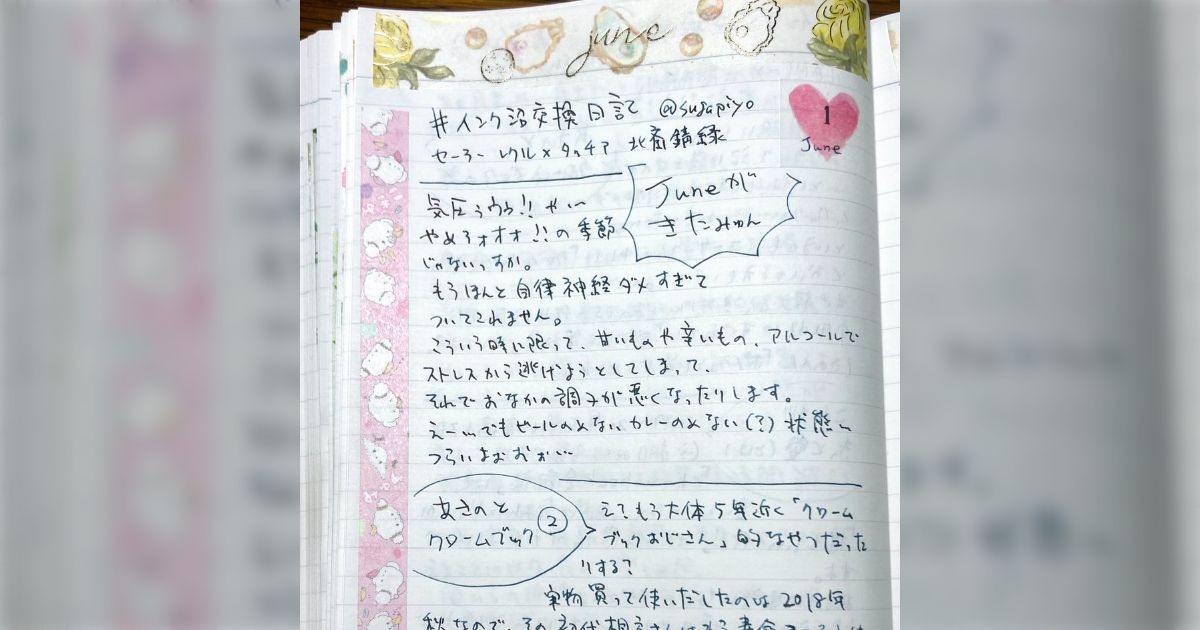 june
#インク沼交換日記 @sugapiyo
1
June
セーラー レクル×タッチア 北斎錆緑
Juneが
きたみゅん
気圧ううう!! や〜
やめろォオオ!!の季節
じゃないっすか。
もうほんと自律神経ダメすぎて
ついてこれません。
こういう時に限って、甘いものや辛いもの、アルコールで
ストレスから逃げようとしてしまって、
それでおなかの調子が悪くなったりします。
えー…でもビールのめない、カレーのめない(?)状態〜
つらいよおおお…
あさのと
クロームブック ②
えてもう大体5年近く「クローム
ブックおじさん」的なやつだった
りする?
実物買って使いだしたのは2018年
秋なので、その初代相立さんはもう寿命